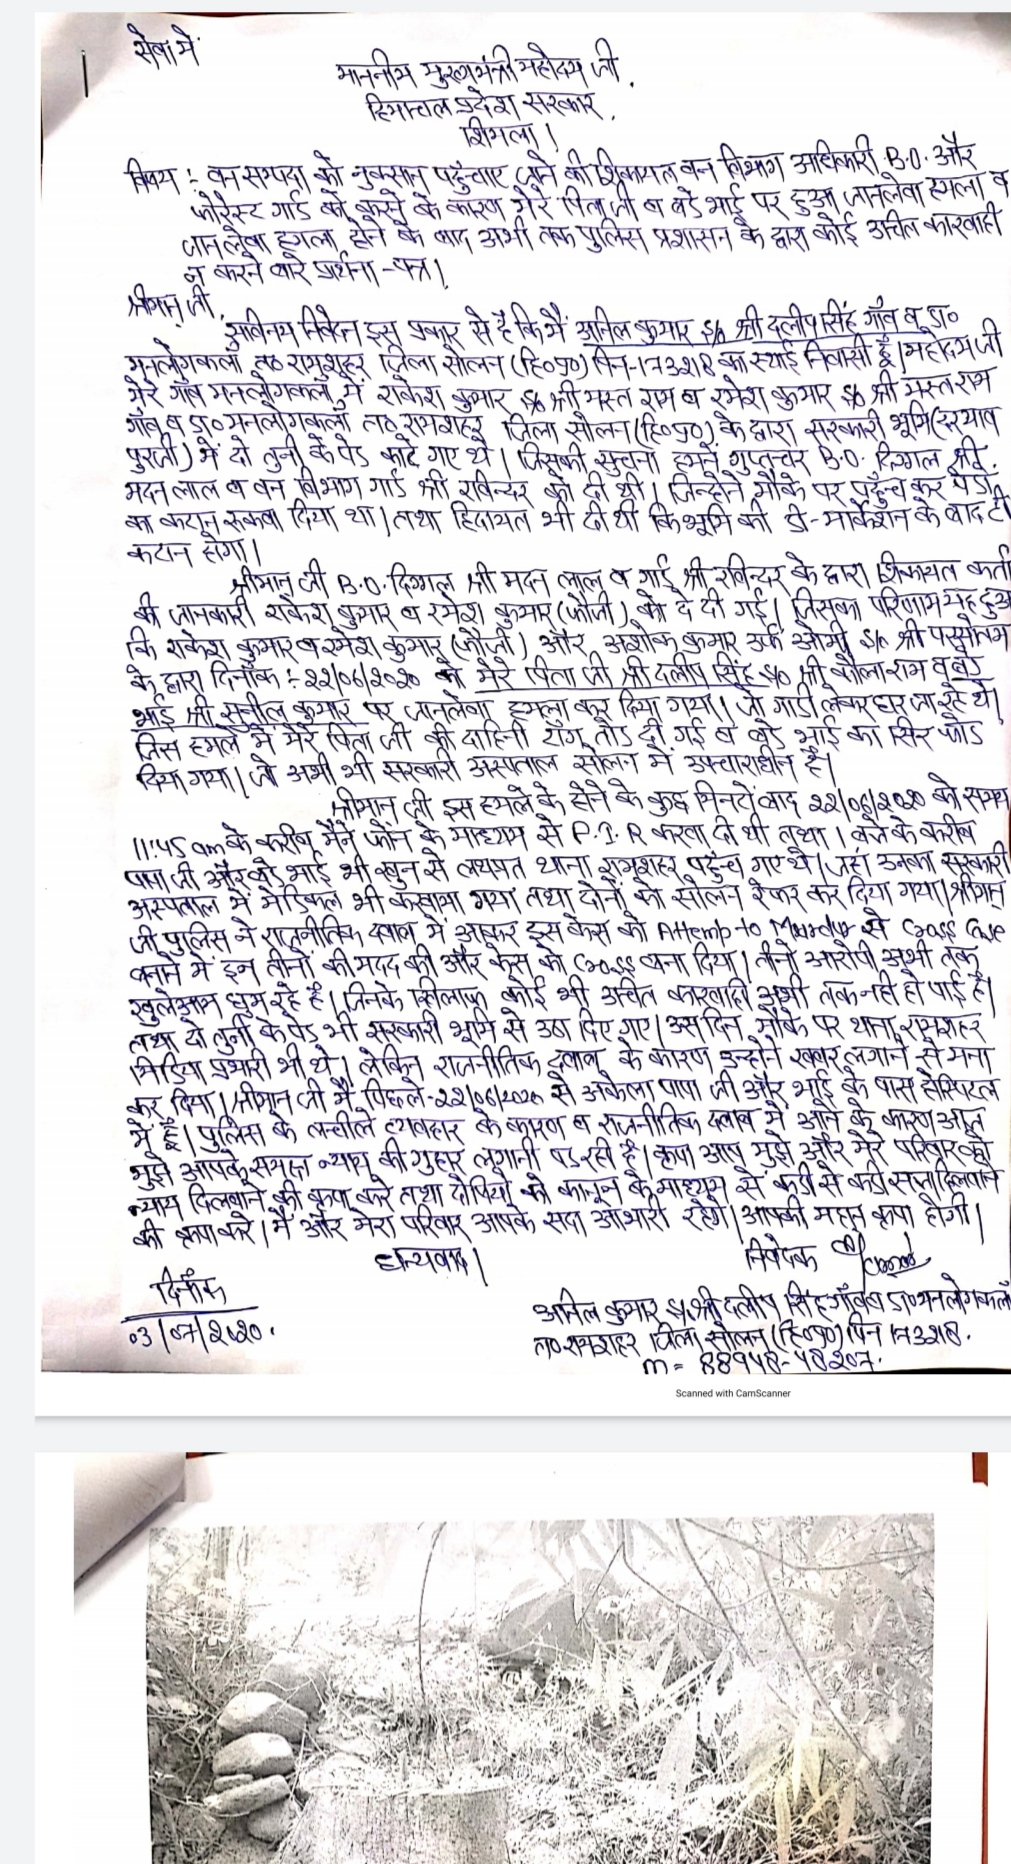 सेवा में
माननीय मुख्यमंत्री महोदय जी,
हिमाचल प्रदेश सरकार,
शिमला।
विषय :- वन सम्पदा को नुकसान पहुँचाए जाने की शिकायत वन विभाग अधिकारी B.O. और
फोरेस्ट गार्ड को करने के कारण मेरे पिता जी व बडे भाई पर हुआ जानलेवा हमला व
जानलेवा हमला होने के बाद अभी तक पुलिस प्रशासन के द्वारा कोई उचित कारवाही
न करने बारे प्रार्थना-पत्र।
श्रीमान् जी,
सविनय निवेदन इस प्रकार से है कि मैं अनिल कुमार S/o श्री दलीप सिंह गाँव व डा०
मनलोगकलां त० रामशहर जिला सोलन (हि०प्र०) पिन-173218 का स्थाई निवासी हूँ। महोदय जी
मेरे गाँव मनलोगकलां में राकेश कुमार S/o श्री मस्त राम व रमेश कुमार S/o श्री मस्तराम
गाँव व डा० मनलोगकलां त० रामशहर जिला सोलन (हि०प्र०) के द्वारा सरकारी भूमि
में दो तुनी के पेड काटे गए थे। जिसकी सुचना हमने गुप्तचर B.O. दिग्गल श्री
मदन लाल व वन विभाग गार्ड श्री रविन्दर को दी थी। जिन्होने मौके पर पहुँच कर पेडो
का कटान रुकवा दिया था। तथा हिदायत भी दी थी कि भूमि की डी-मार्केशन के बाद ही
कटान होगा।
श्रीमान् जी B.O. दिग्गल श्री मदन लाल व गार्ड श्री रविन्दर के द्वारा शिकायत कर्ता
की जानकारी राकेश कुमार व रमेश कुमार (फौजी) को दे दी गई। जिसका परिणाम यह हुआ
कि राकेश कुमार व रमेश कुमार (फौजी) और अशोक कुमार उर्फ S/o श्री
के द्वारा दिनाँक :- 22/06/2020 को मेरे पिता जी श्री दलीप सिंह S/o श्री व बडे
भाई श्री सुनील कुमार पर जानलेवा हमला कर दिया गया। जो गाडी लेकर घर जा रहे थे।
जिस हमले में मेरे पिता जी की दाहिनी टांग तोड दी गई व बडे भाई का सिर फोड
दिया गया। जो अभी भी सरकारी अस्पताल सोलन में उपचाराधीन है।
श्रीमान् जी इस हमले के होने के कुछ मिनटो बाद 22/06/2020 को समय
11:45 am के करीब मैंने फोन के माध्यम से F.I.R करवा दी थी तथा 1 बजे के करीब
पापा जी और बडे भाई भी खुन से लथपत थाना रामशहर पहुँच गए थे। जहां उनका सरकारी
अस्पताल में मेडिकल भी करवाया गया तथा दोनो को सोलन रेफर कर दिया गया। श्रीमान्
जी पुलिस ने राजनीतिक दबाव में आकर इस केस को Attemp to Murdur से Cross Case
बनाने में इन तीनो की मदद की और केस को Cross बना दिया। तीनो आरोपी अभी तक
खुलेआम घुम रहे है। जिनके खिलाफ कोई भी उचित कारवाही अभी तक नही हो पाई है।
तथा दो तुनी के पेड भी सरकारी भूमि से उठा दिए गए। उस दिन मौके पर थाना रामशहर
मिडिया प्रभारी भी थे। लेकिन राजनीतिक दबाव के कारण उन्होने खबर लगाने से मना
कर दिया। श्रीमान जी मैं पिछले-22/06/2020 से अकेला पापा जी और भाई के पास होस्पिटल
में हूँ। पुलिस के लचीले व्यवहार के कारण व राजनीतिक दबाव में आने के कारण आज
मुझे आपके समक्ष न्याय की गुहार लगानी पड रही है। कृपा आप मुझे और मेरे परिवार को
न्याय दिलवाने की कृपा करे तथा दोषियो को कानून के माध्यम से कडी से कडी सजा दिलवाने
की कृपा करे। मैं और मेरा परिवार आपके सदा आभारी रहेंगे। आपकी महान कृपा होगी।
धन्यवाद।
निवेदक
दिनाँक
03/07/2020.
अनिल कुमार S/o श्री दलीप सिंह गाँव व डा० मनलोगकलां
त० रामशहर जिला सोलन (हि०प्र०) पिन 173218.
m = 88948-48207.
Scanned with CamScanner